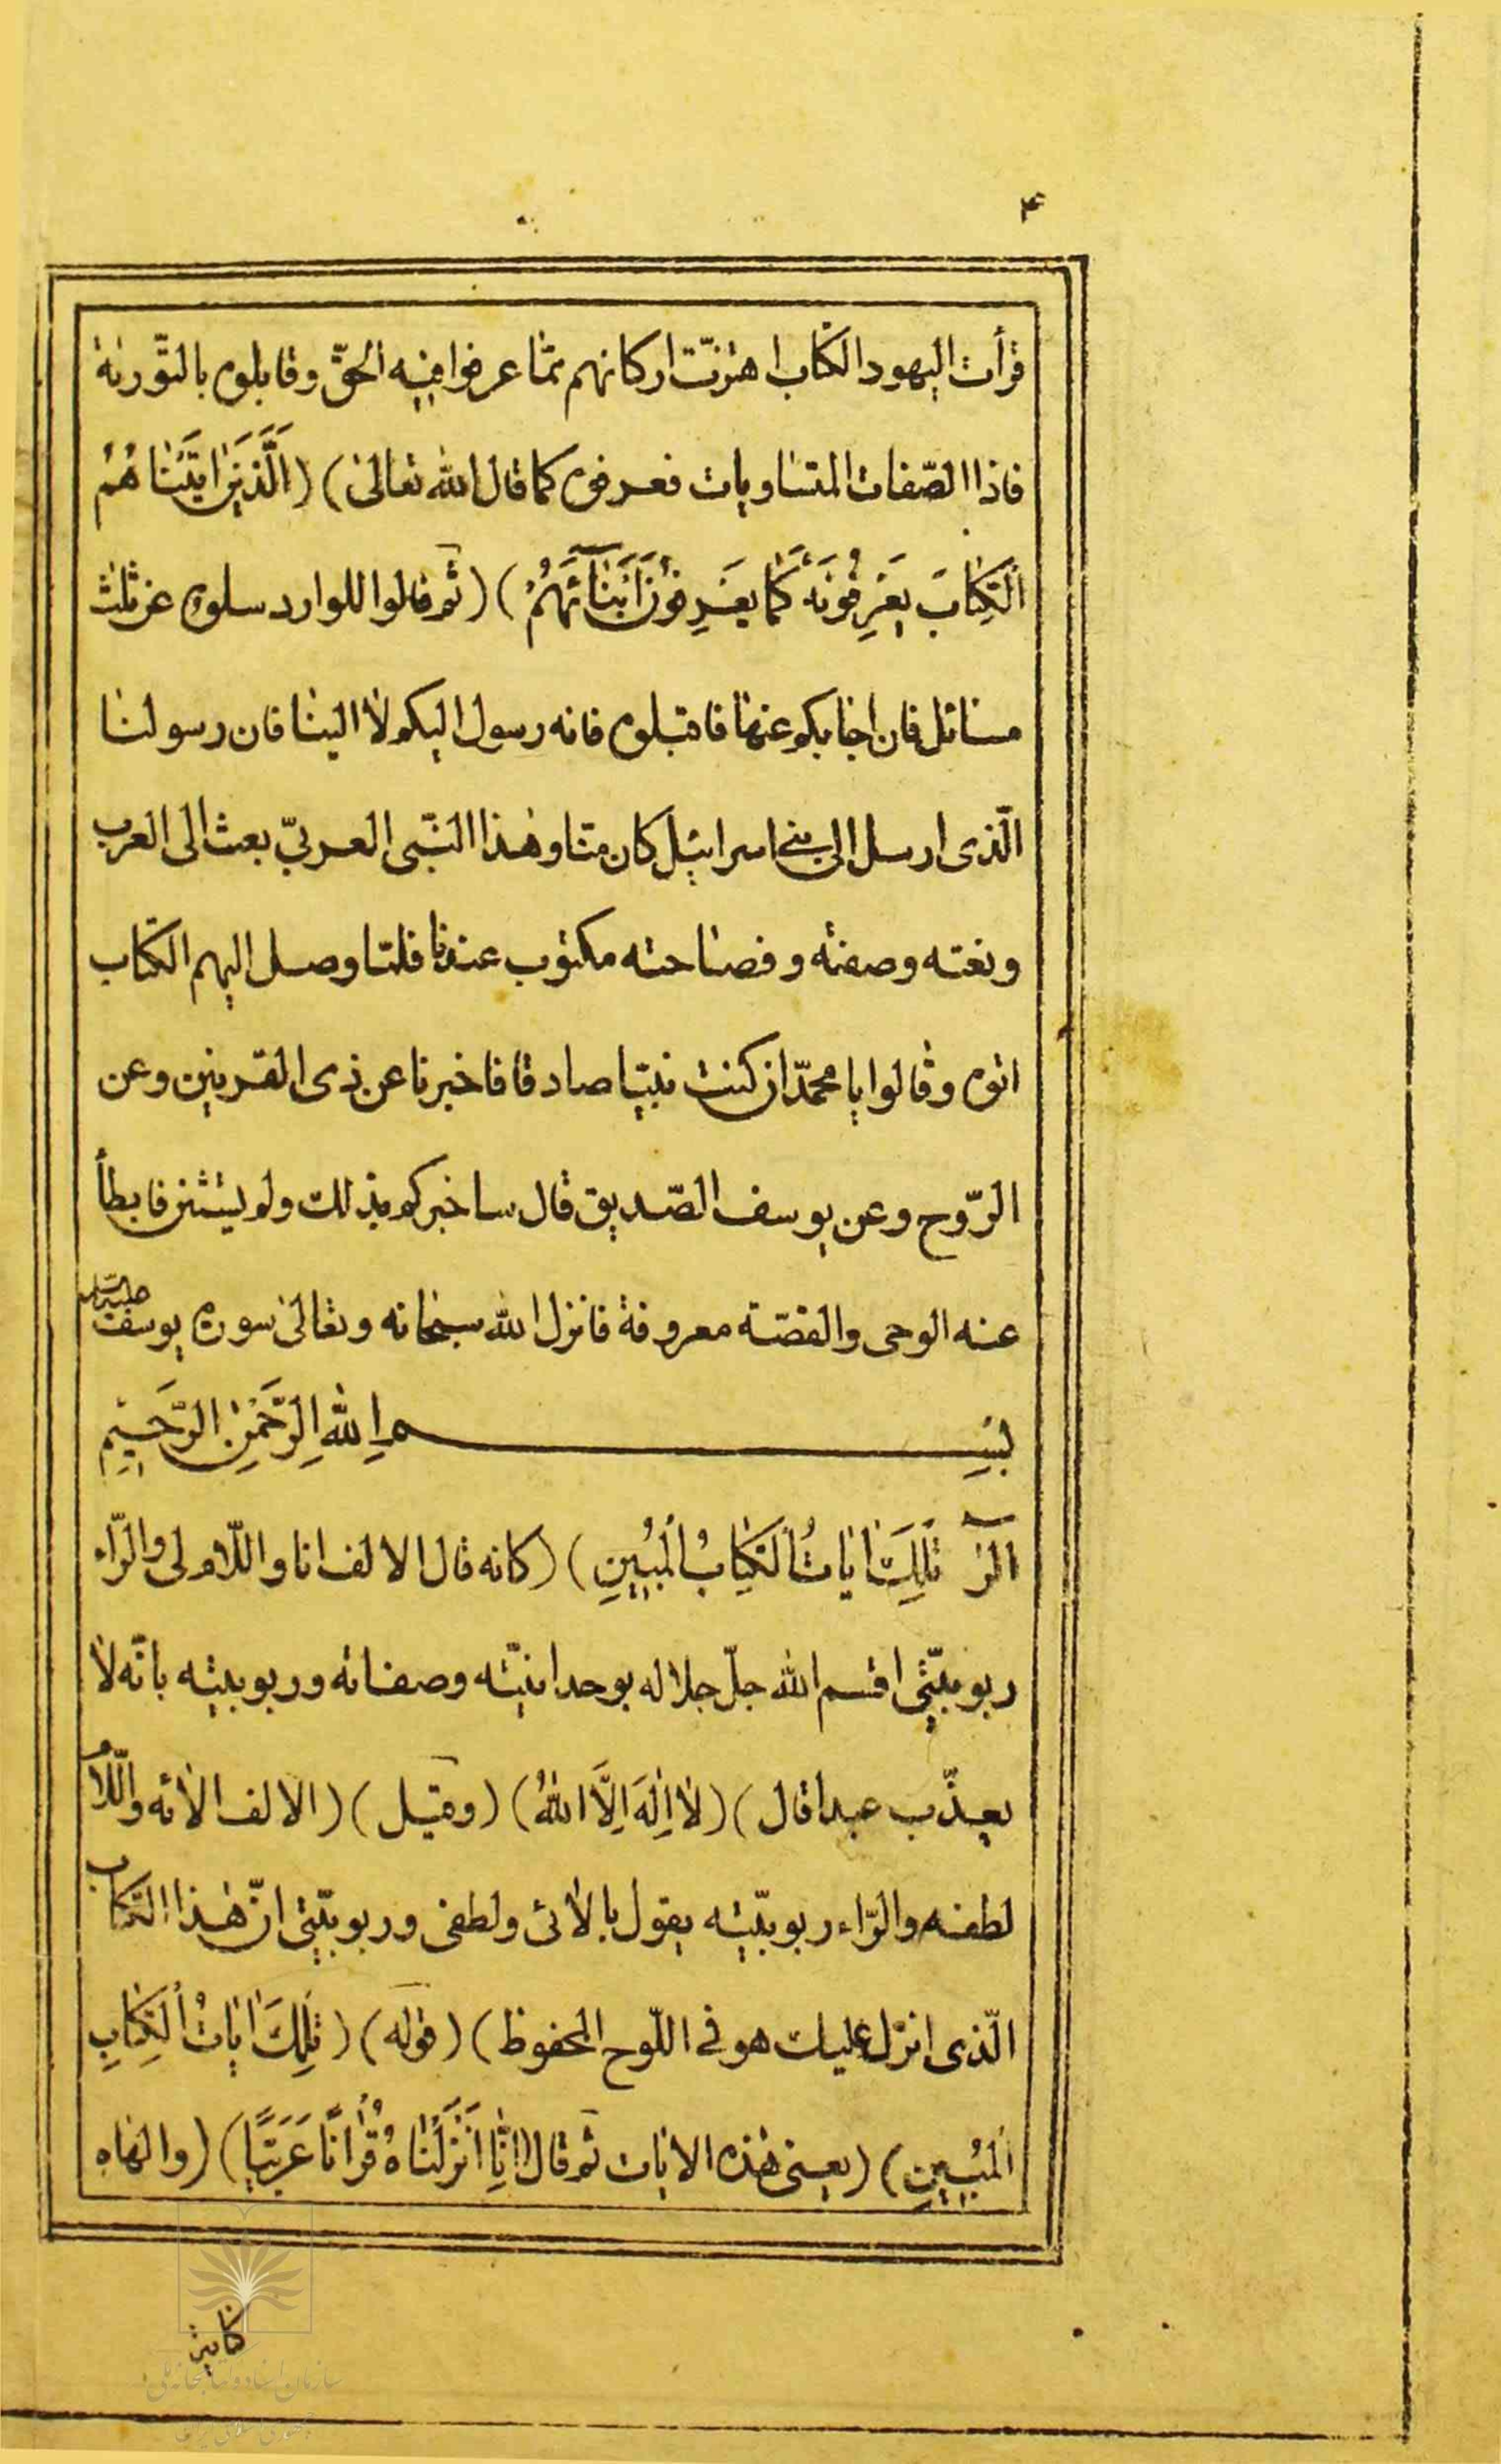 ۴
قرأت اليهود الكتاب اهتزّت اركانهم ممّا عرفوا فيه الحقّ وقابلوه بالتّورية
فاذا الصّفات المتساويات فعرفوه كما قال الله تعالى) (اَلَّذينَ اتَيْناهُمُ
الْكِتابَ يَعْرِفُونَهُ كَما يَعْرِفُونَ اَبْنآئَهُمْ) (ثم قالوا للوارد سلوه عن ثلث
مسائل فان اجابكم عنها فاقبلوه فانه رسول اليكم لا الينا فان رسولنا
الّذى ارسل الى بنى اسرائيل كان منّا وهذا النّبى العربيّ بعث الى العرب
ونعته وصفته وفصاحته مكتوب عندنا فلمّا وصل اليهم الكتاب
اتوه وقالوا يا محمّد ان كنت نبيّا صادقا فاخبرنا عن ذى القرنين وعن
الرّوح وعن يوسف الصّديق قال ساخبركم بذلك ولم يستثن فابطأ
عنه الوحى والقصّة معروفة فانزل الله سبحانه وتعالى سورة يوسف عليه السلام
بِسْمِ اللهِ الرَّحْمنِ الرَّحيمِ
الٓرٰ تِلْكَ اياتُ الْكِتابُ الْمُبينِ) (كانه قال الالف انا واللّام لى والرّاء
ربوبيّتى اقسم الله جلّ جلاله بوحدانيّته وصفاته وربوبيته بانّه لا
يعذّب عبدا قال) (لا اِلهَ اِلَّا اللهُ) (وقيل) (الالف الائه واللّام
لطفه والرّاء ربوبيّته يقول بالائى ولطفى وربوبيّتى انّ هذا الكتاب
الّذى انزل عليك هو فى اللّوح المحفوظ) (قوله) (تِلْكَ اياتُ الْكِتابِ
الْمُبينِ) (يعنى هذه الايات ثم قال اِنّا اَنْزَلْناهُ قُرْاناً عَرَبِيّاً) (والهاء
كناية
سازمان اسناد و کتابخانه ملی
جمهوری اسلامی ایران